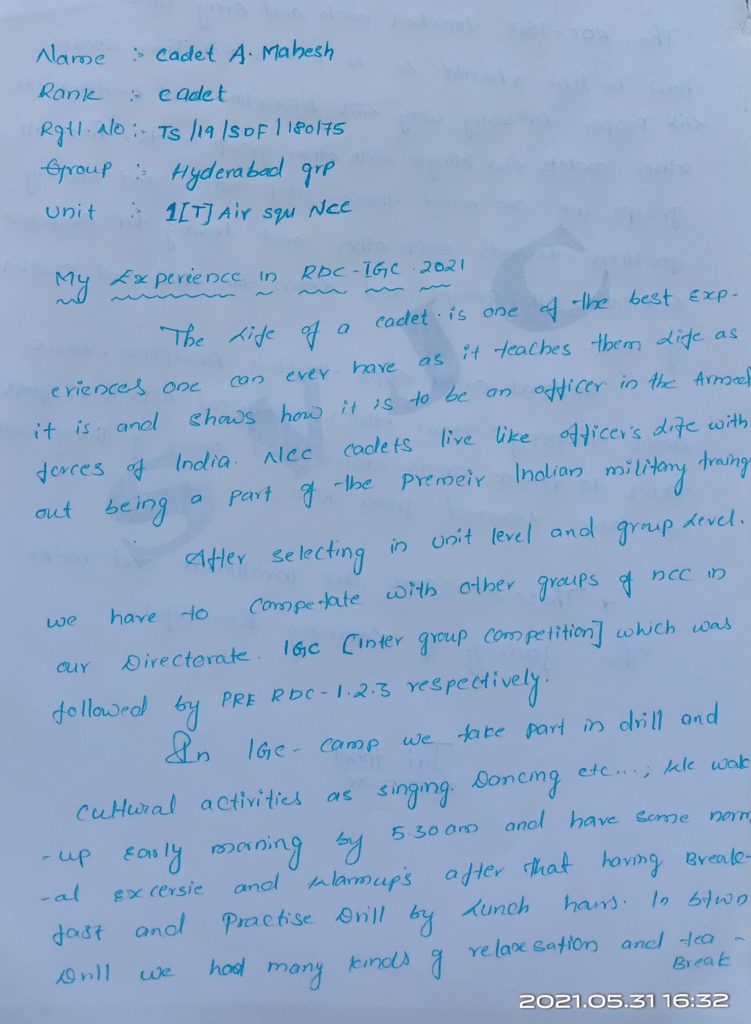 Name :- cadet A. Mahesh
Rank :- cadet
Rgtl. No :- TS/19/SDF/180175
Group :- Hyderabad grp
Unit :- 1[T] Air squ NCC
My Experience in RDC-IGC. 2021
The Life of a cadet. is one of the best Exp-
eriences one can ever have as it teaches them Life as
it is and shows how it is to be an officer in the Armed
forces of India. NCC cadets live like officer's life with
out being a part of the Premeir Indian military traing
After selecting in unit level and group Level.
we have to competate with other groups of ncc in
our Directorate. IGC [Inter group competition] which was
followed by PRE RDC-1.2.3 respectively.
In IGC- camp we take part in drill and
cultural activities as singing. Dancing etc...; We wak
-up Early morning by 5.30 am and have some norm
-al excersie and Warmup's after that having Break-
fast and Practise Drill by Lunch hours. In btwn
Drill we had many kinds of relaxesation and tea-
Break
SVJC
2021.05.31 16:32